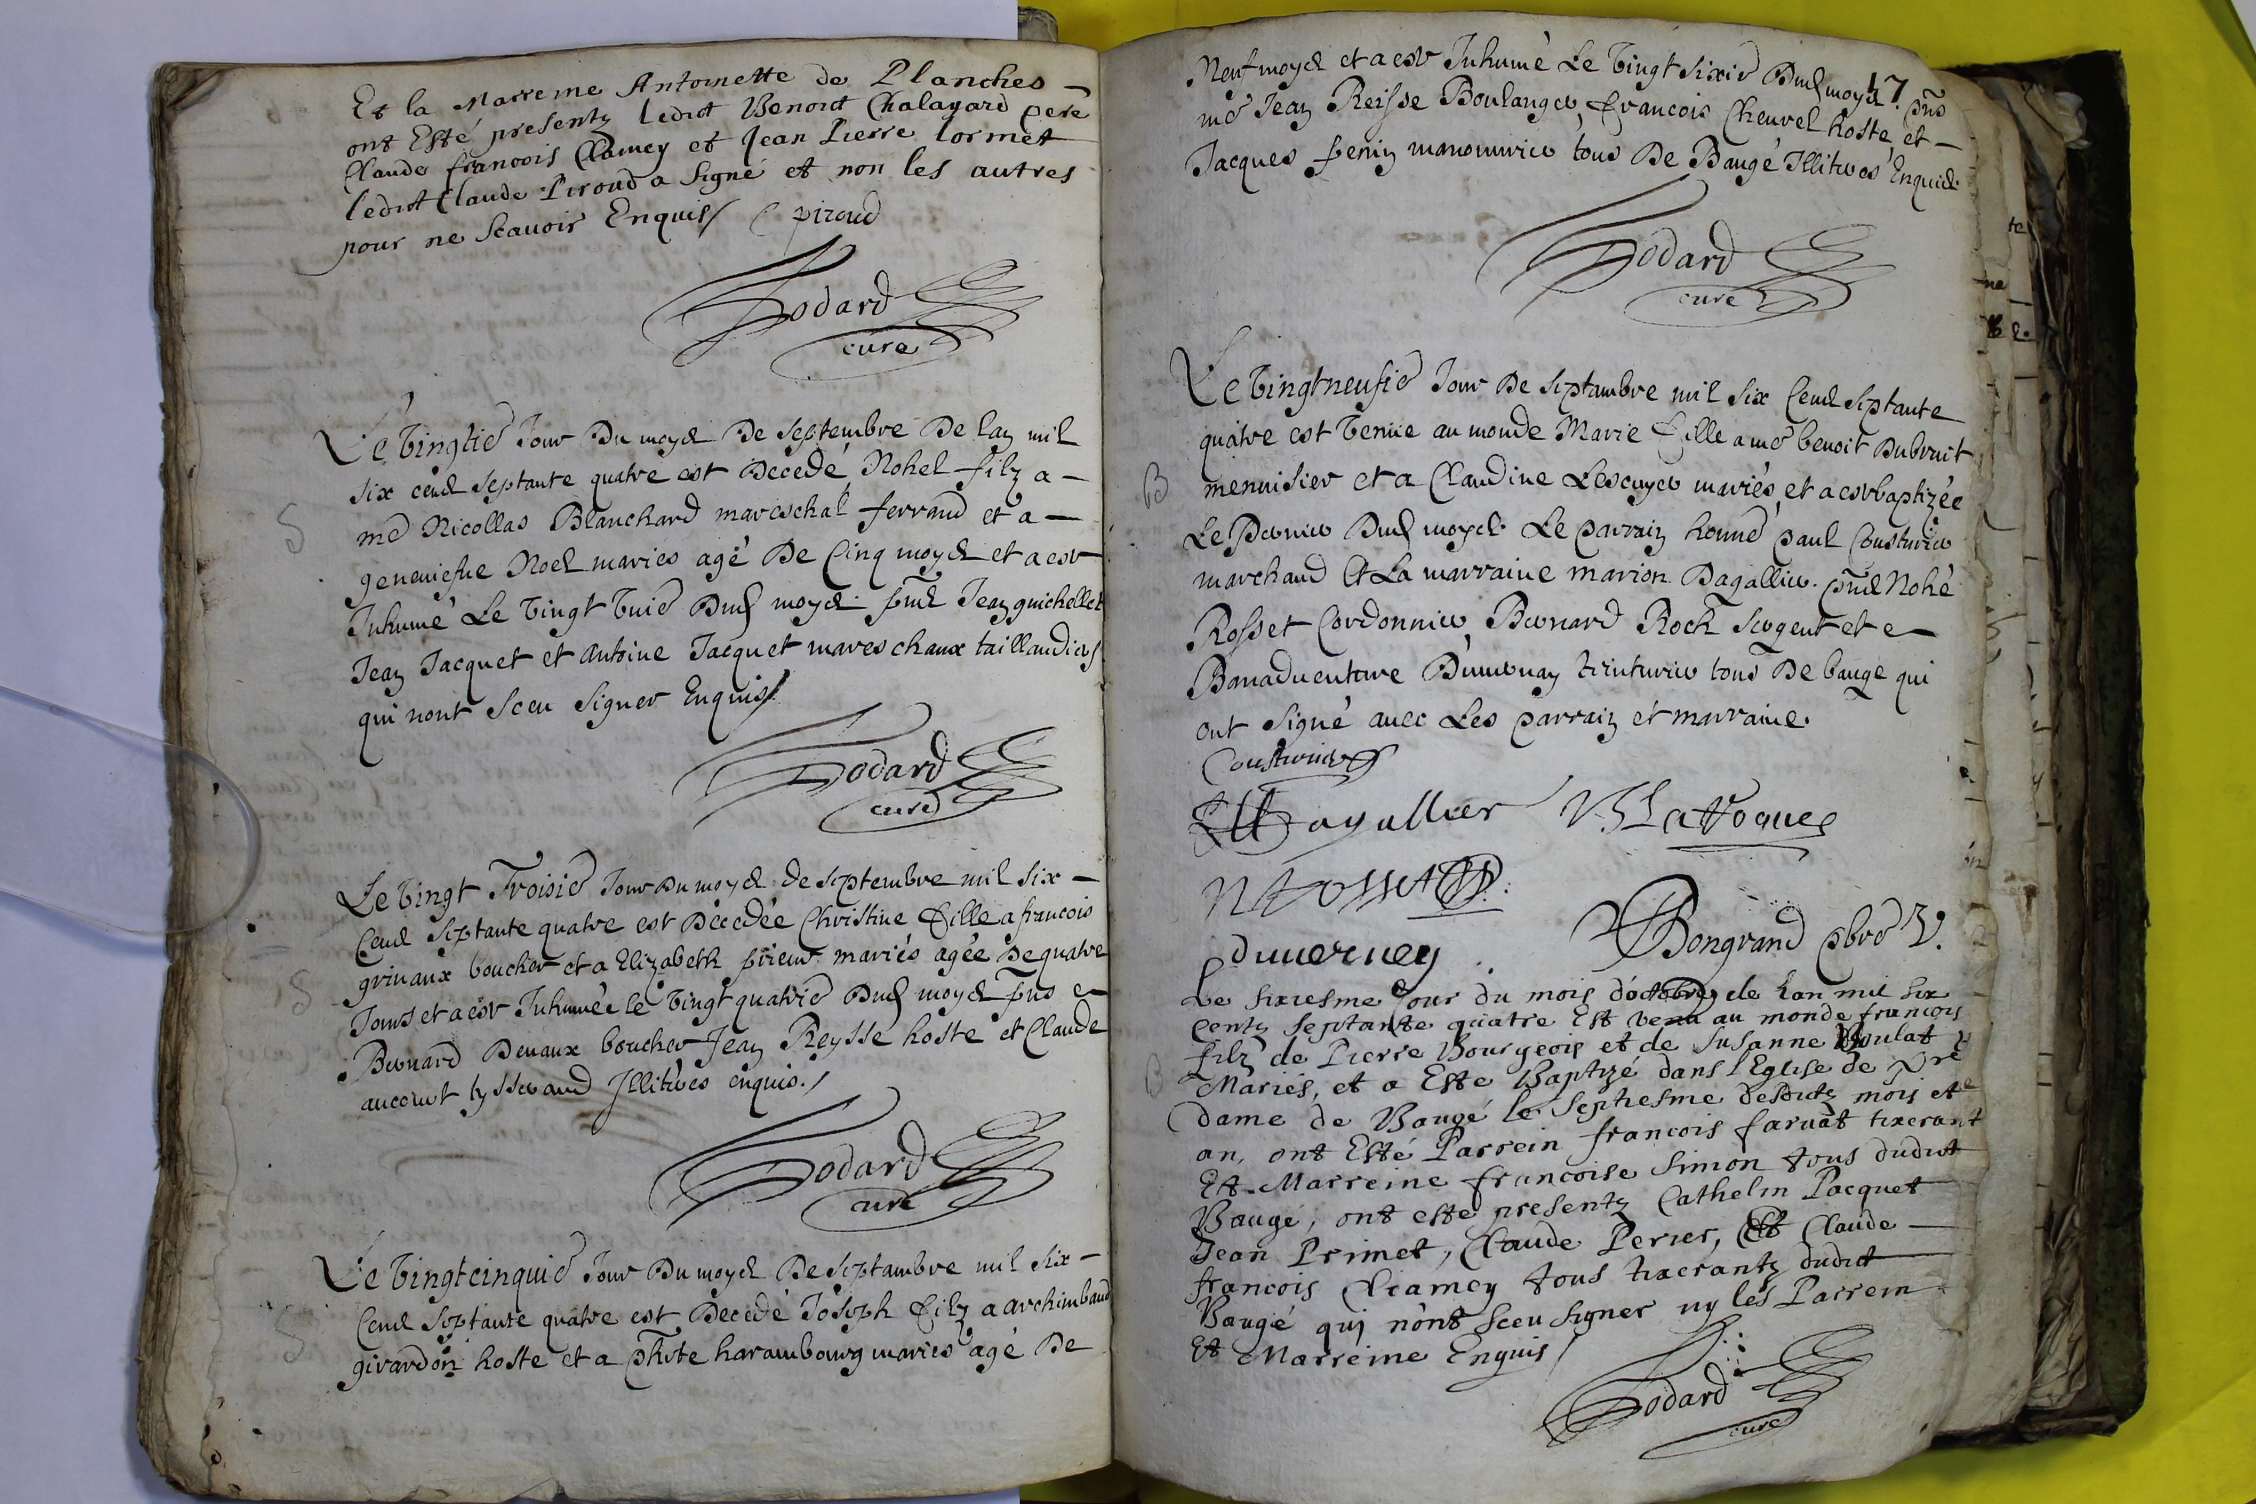 Et la Marreine Antoinette de Planches
ont Esté presentz ledict Benoict Chalayard pere
Claude francois Clamey et Jean Pierre lormet
ledict Claude Piroud a signé et non les autres
pour ne scavoir Enquis / C piroud
Godard
curé
Le Vingtie Jour Du moys De septembre De lan mil
six cend septante quatre est Decedé Nohel filz a
me Nicollas Blanchard mareschal ferrand et a
geneuiefue Noel mariés agé De Cinq moys et a esté
Inhumé Le Vingt Vnie Dud moys pnt Jean guichellet
Jean Jacquet et Antoine Jacquet mareschaux taillandiers
qui nont sceu signer Enquis /
Godard
curé
S
Le Vingt Troisie Jour Du moys de septembre mil six
Cend septante quatre est Decedée Christine fille a francois
grinaux boucher et a Elizabeth prieur mariés agée De quatre
Jours et a esté Inhumée le Vingt quatrie Dud moys pns
Bernard Deuaux boucher Jean Reysse hoste et Claude
tysserand Illiteres enquis. /
Godard
curé
S
Le Vingtcinquie Jour Du moys De septambre mil six
Cend septante quatre est Decedé Joseph filz a archimbaud
girardon hoste et a harambourg mariés agé De
S
17
Neuf moys et a esté Inhumé Le Vingt sixie Dud moys pns
me Jean Reisse Boulanger, francois Cheurel hoste et
Jacques fenin manouurier tous De Baugé Illiteres Enquis.
Godard
curé
Le Vingtneufie Jour De septambre mil six Cend septante
quatre est Venue au monde Marie fille a me benoit Dubruit
menuisier et a Claudine Lescuyer mariés et a esté baptizée
Le Dernier Dud moys. Le parrain honne paul Cousturier
marchand Et La marraine marion Dagallier. pnt Nohé
Rosset Cordonnier, Bernard Roch sergent et
Bonaduenture Duuernay teinturier tous De bauge qui
ont signé auec Les parrain et marraine.
B
Cousturier
Dagallier
N Rosset
duuerney Bongrand pbre V.
Le sixiesme Jour du mois doctobre de lan mil six
centz septante quatre Est venu au monde francois
filz de Pierre Bourgeois et de Susanne Boulat
Mariés, et a Esté Baptizé dans l'Eglise de nre
dame de Baugé le septiesme desdictz mois et
an, ont Esté Parrein francois faruat tixerant
Et Marreine francoise Simon tous dudict
Baugé, ont esté presentz Cathelin Pacquet
Jean Primet, Claude Perier, Et Claude
francois Clamey tous tixerantz dudict
Baugé qui n'ont sceu signer ny les Parrein
Et Marreine Enquis /
B
Godard
curé